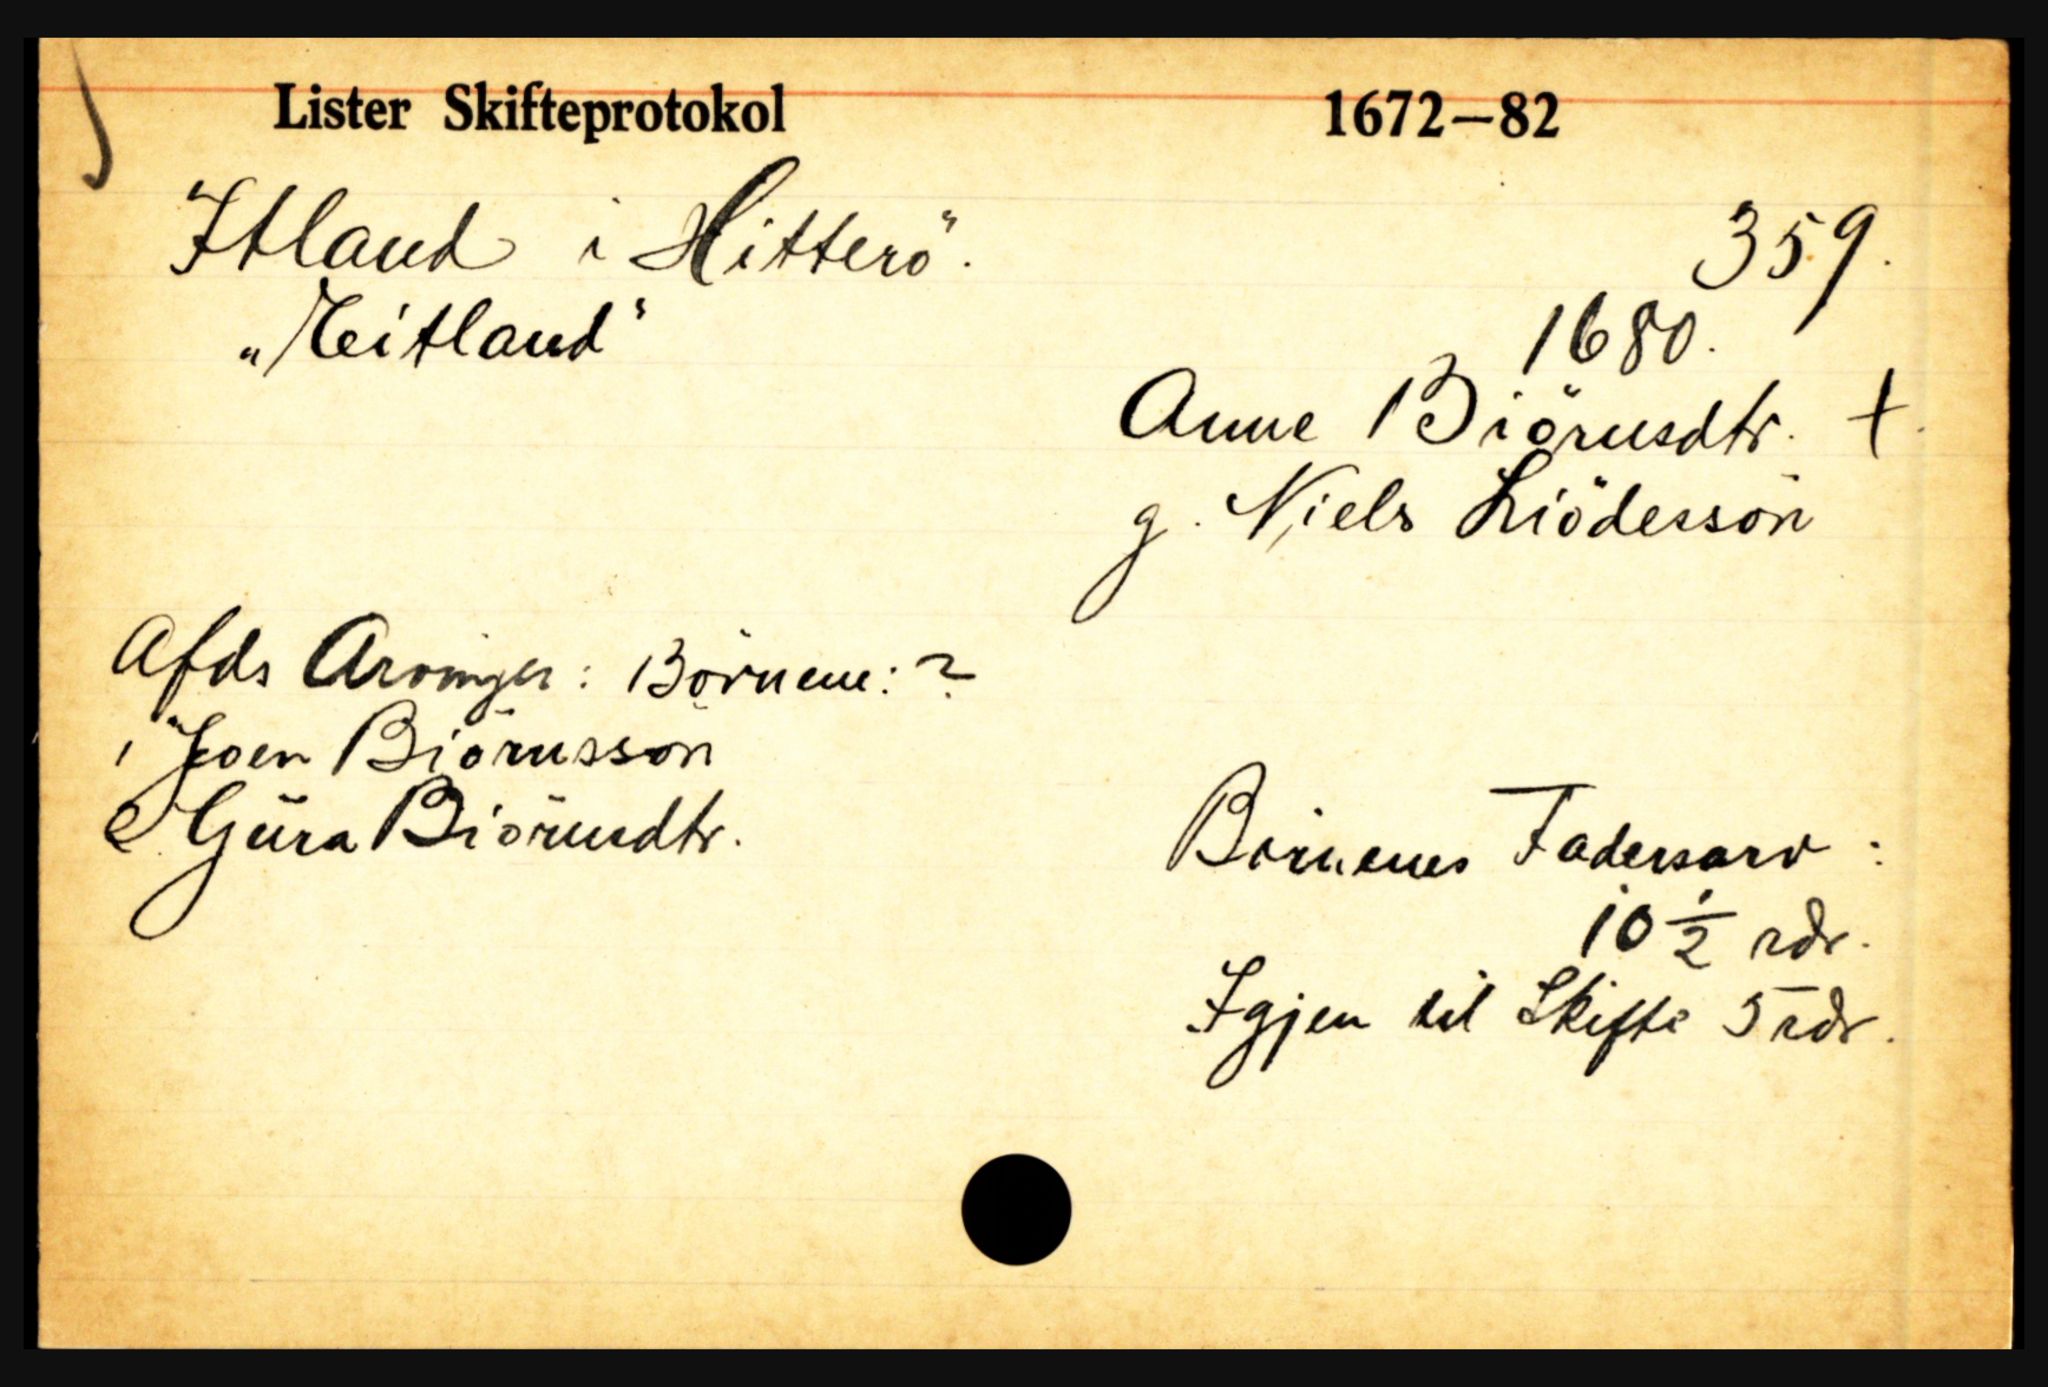 Lister Skifteprotokol 1672—82
Itland i Hitterö. 359.
"Reitland" 1680.
Anne Biörnsdtr. †.
g. Niels Liödessön
Afds Arvinger: Börnene: ?
1 Joen Biörnsson
2. Güra Biörnsdtr.
Börnenes Fadersarv:
10 1/2 rdr.
Igjen til Skifte 5 rdr.